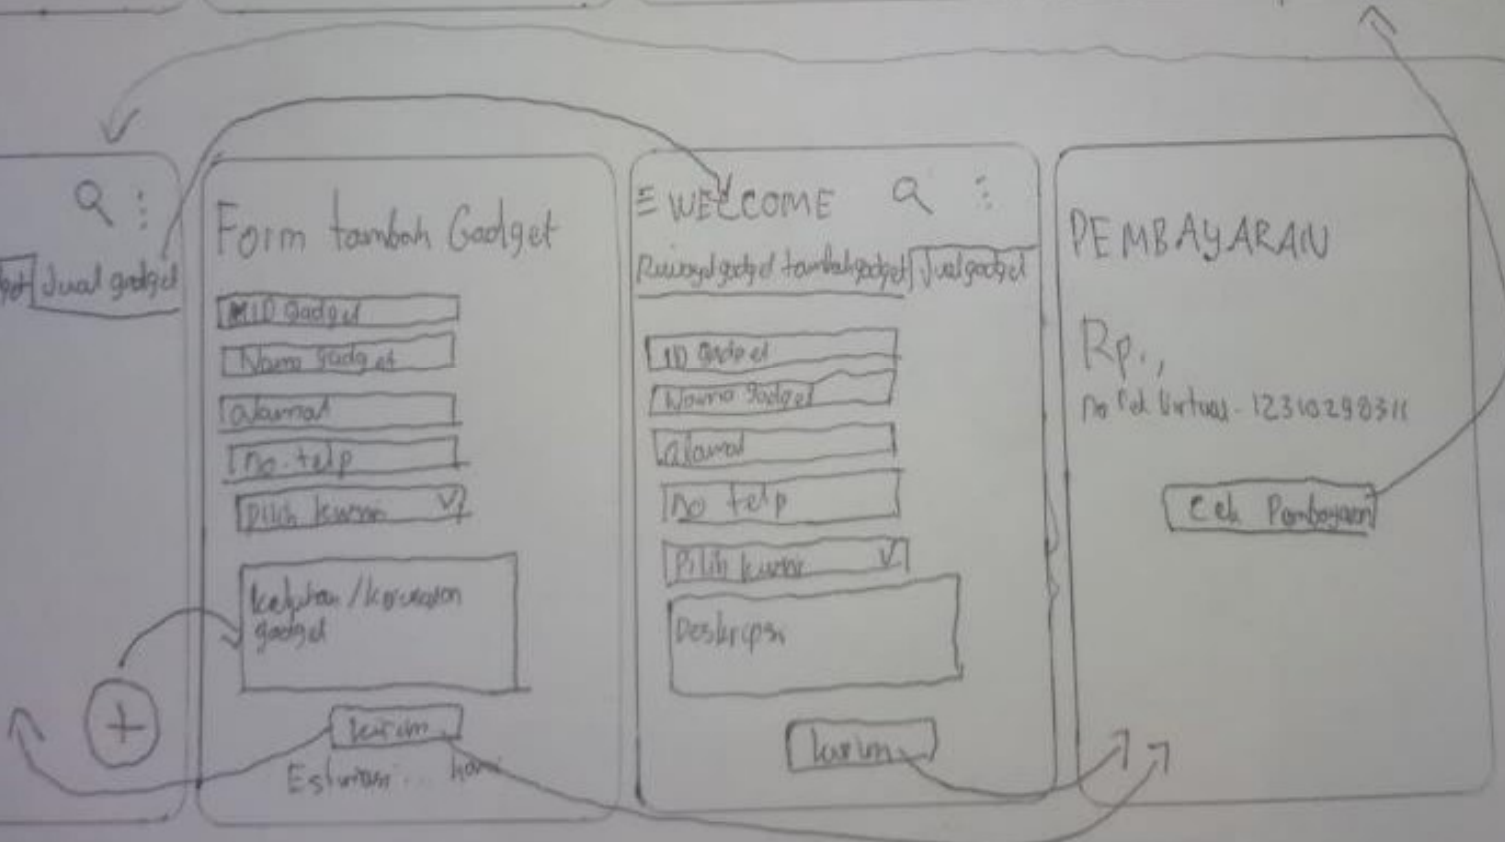 get Jual gadget
Form tambah Gadget
ID gadget
Nama gadget
alamat
no. telp
pilih kurir
keluhan/kerusakan
gadget
kirim
Estimasi ... hari
WELCOME
Riwayat gadget tambah gadget Jual gadget
ID gadget
Nama gadget
alamat
no telp
Pilih kurir
Deskripsi
kirim
PEMBAYARAN
Rp.,
no rek Virtual - 12310298311
Cek Pembayaran